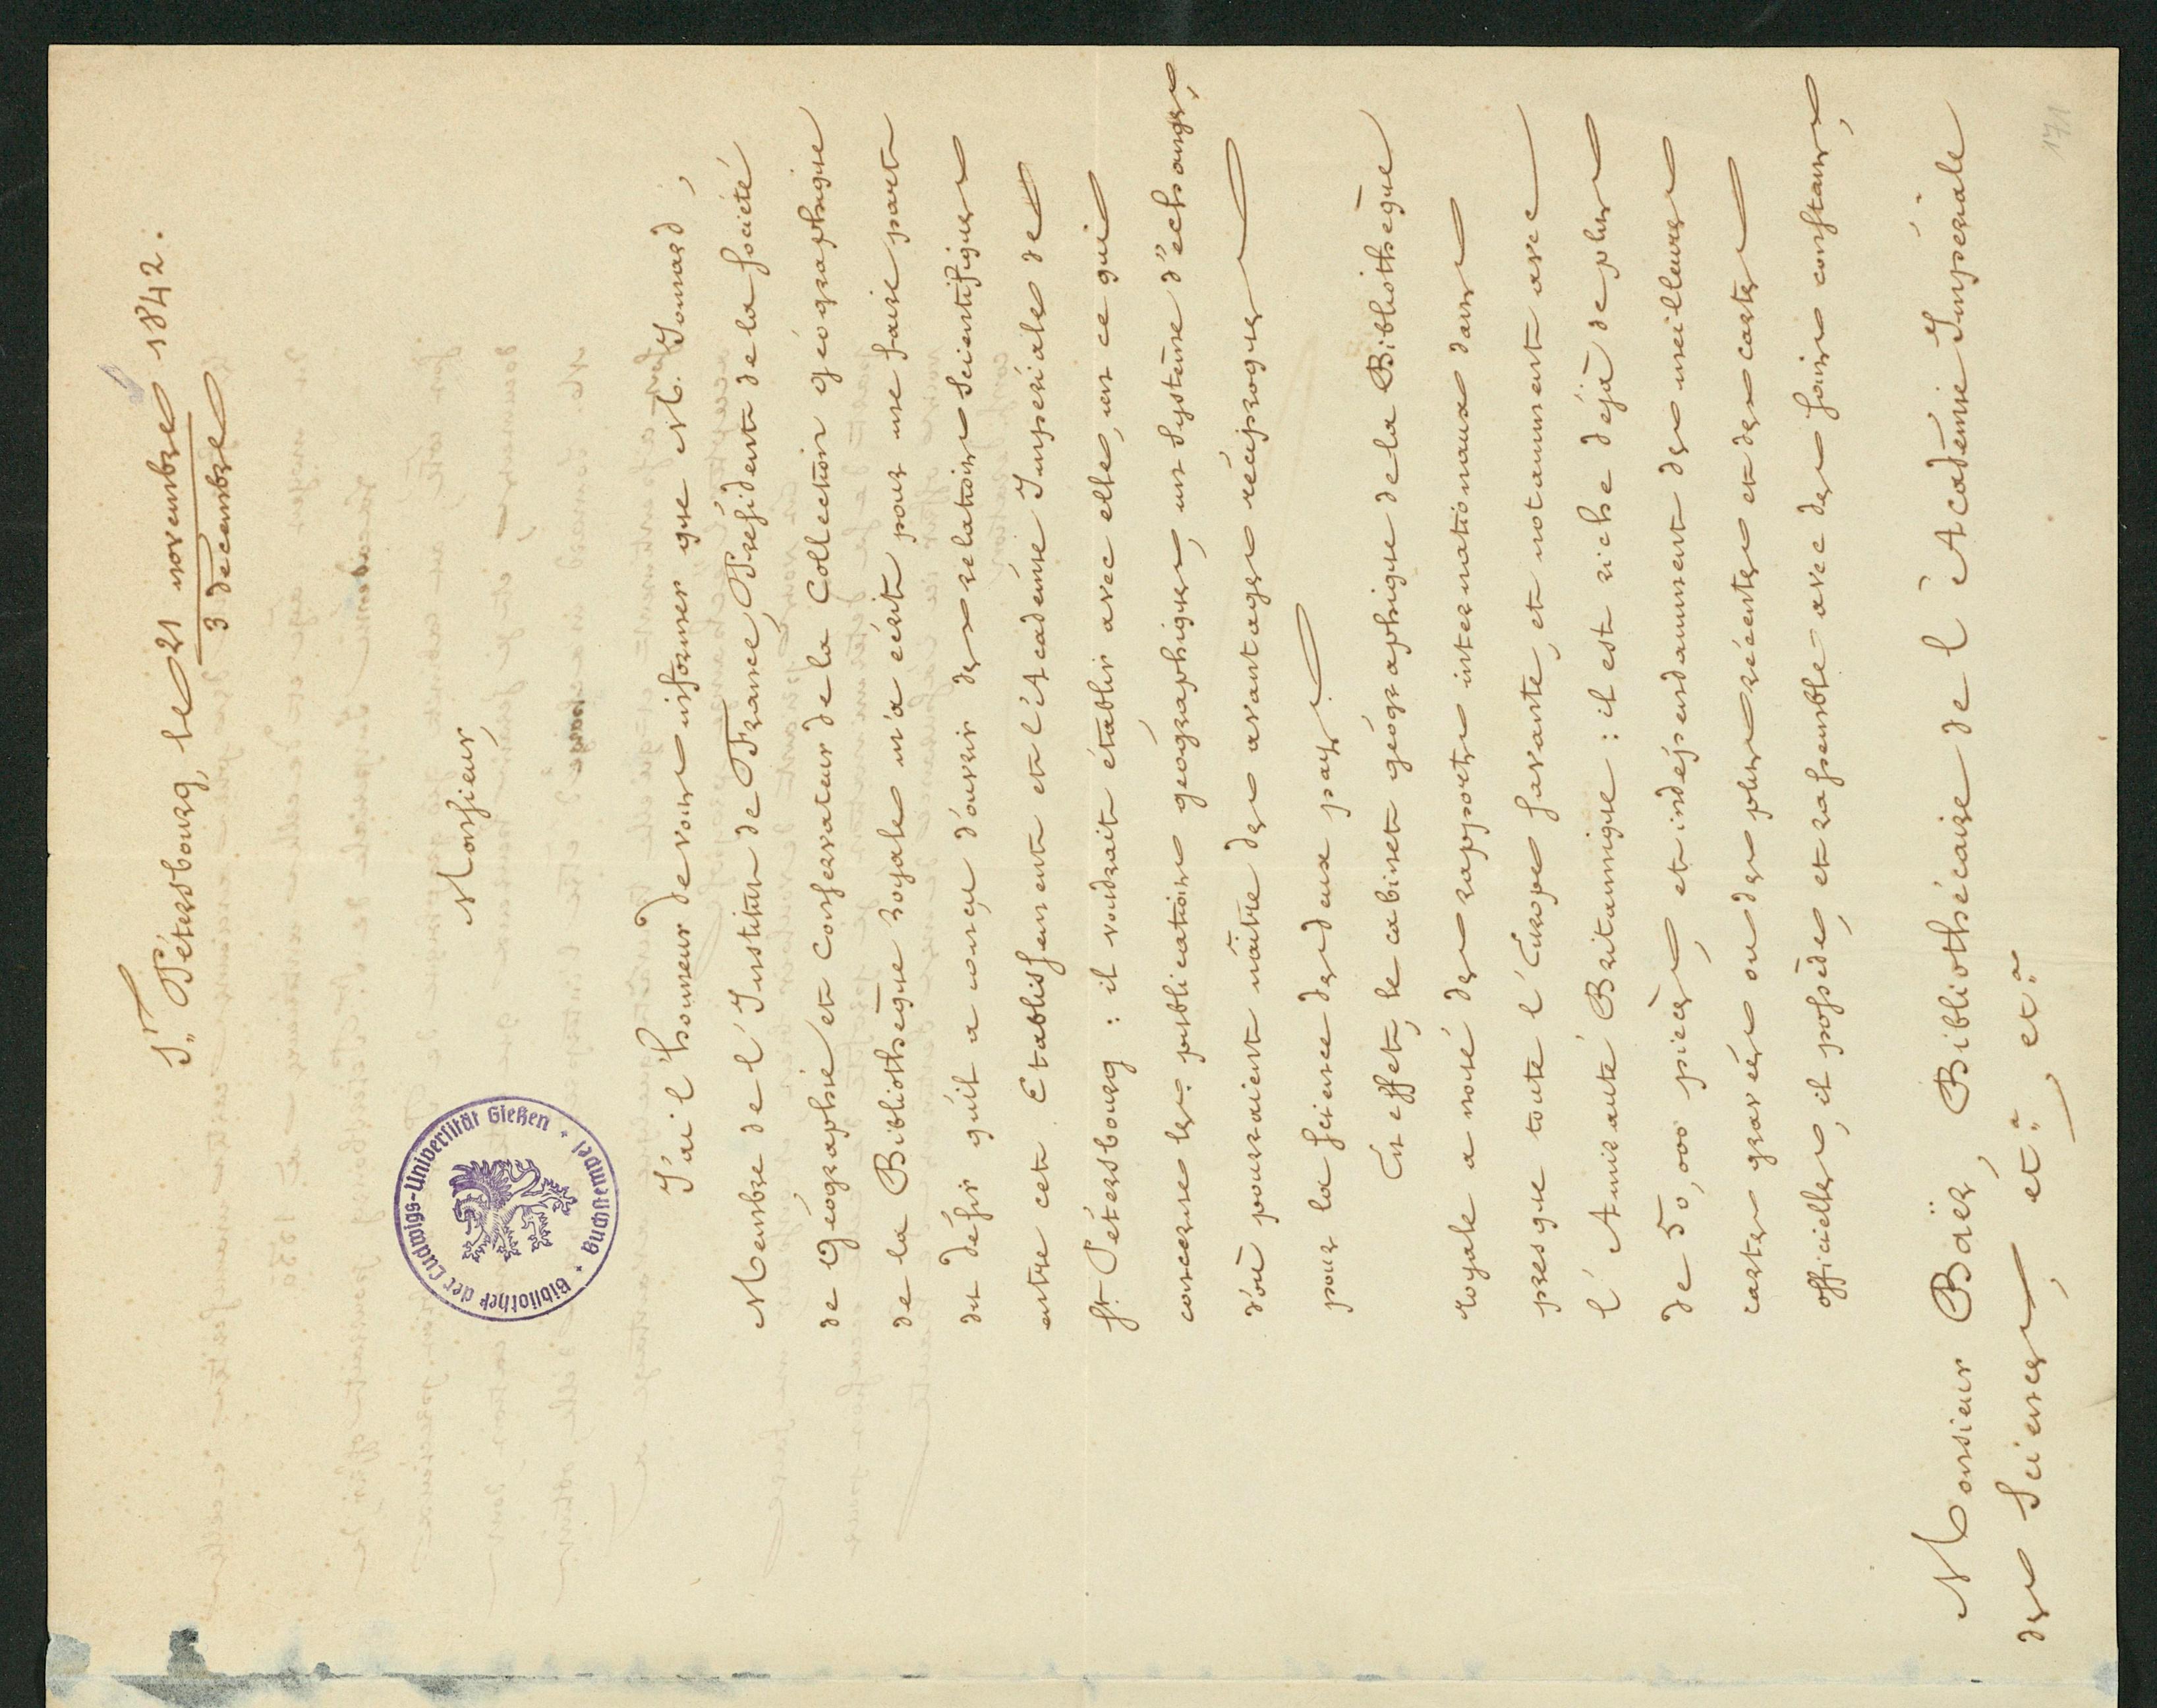 St. Pétersbourg, le 21 novembre 1842.
3 décembre
Monsieur,
Bibliothek der Ludwigs-Universität Gießen + Buchstempel +
J'ai l'honneur de vous informer que M. Jomard,
Membre de l'Institut de France, Président de la Société
de Géographie et Conservateur de la Collection géographique
de la Bibliothèque royale m'a écrit pour me faire part
du désir qu'il a conçu d'ouvrir des relations scientifiques
entre cet Etablissement et l'Académie Impériale de
St. Pétersbourg : il voudrait établir avec elle, en ce qui
concerne les publications géographiques, un Système d'échanges,
d'où pourraient naître des avantages réciproques
pour la science des deux pays.
En effet, le cabinet géographique de la Bibliothèque
royale a noué des rapports internationaux dans
presque toute l'Europe savante, et notamment avec
l'Amirauté Britannique : il est riche déjà de plus
de 50,000 pièces, et indépendamment des meilleures
cartes gravées ou des plus récentes et des cartes
officielles, il possède, et rassemble avec des soins constans,
Monsieur Baër, Bibliothécaire de l'Académie Impériale
des Sciences, etc., etc.
171